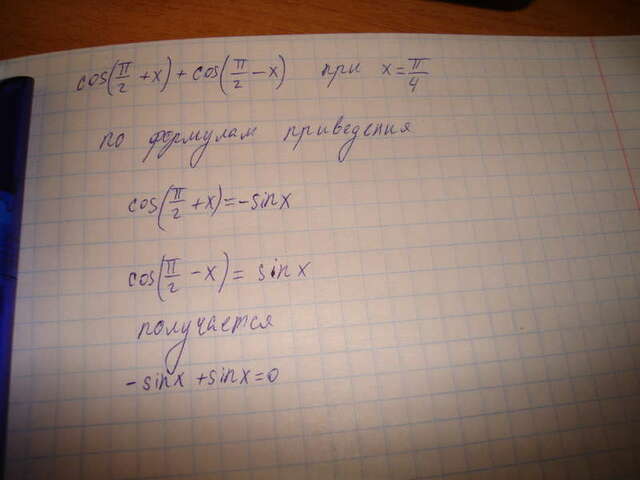 cos(π/2 + x) + cos(π/2 - x) при x = π/4
по формулам приведения
cos(π/2 + x) = -sin x
cos(π/2 - x) = sin x
получается
-sin x + sin x = 0